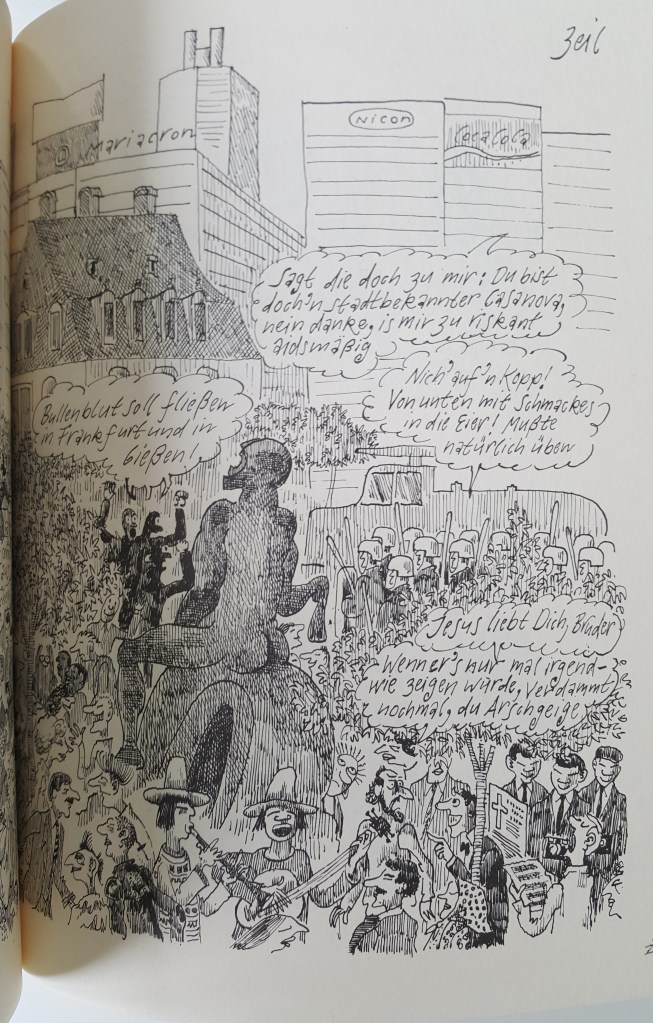 Zeil
mariacron
Nicon
Coca Cola
Sagt die doch zu mir: Du bist
doch'n stadtbekannter Casanova,
nein danke, is mir zu riskant
aidsmäßig
Nich' auf'n Kopp!
Von unten mit Schmackes
in die Eier! Mußte
natürlich üben
Bullenblut soll fließen
in Frankfurt und in
Gießen!
Jesus liebt Dich, Bruder
Wenner's nur mal irgend-
wie zeigen würde, verdammt
nochmal, du Arschgeige